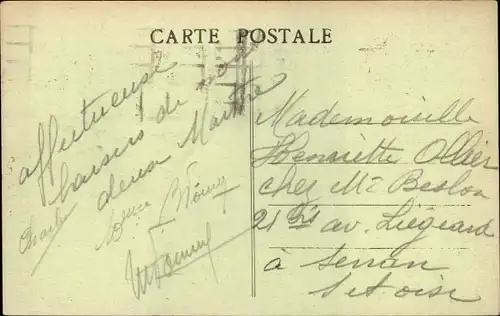 CARTE POSTALE
affectueuse
baisers de vous
deux Marthe
Charles
Mademoiselle
Henriette Ollier
chez Mr Beslon
21 bis av. Liégeard
à Serran
S et Oise